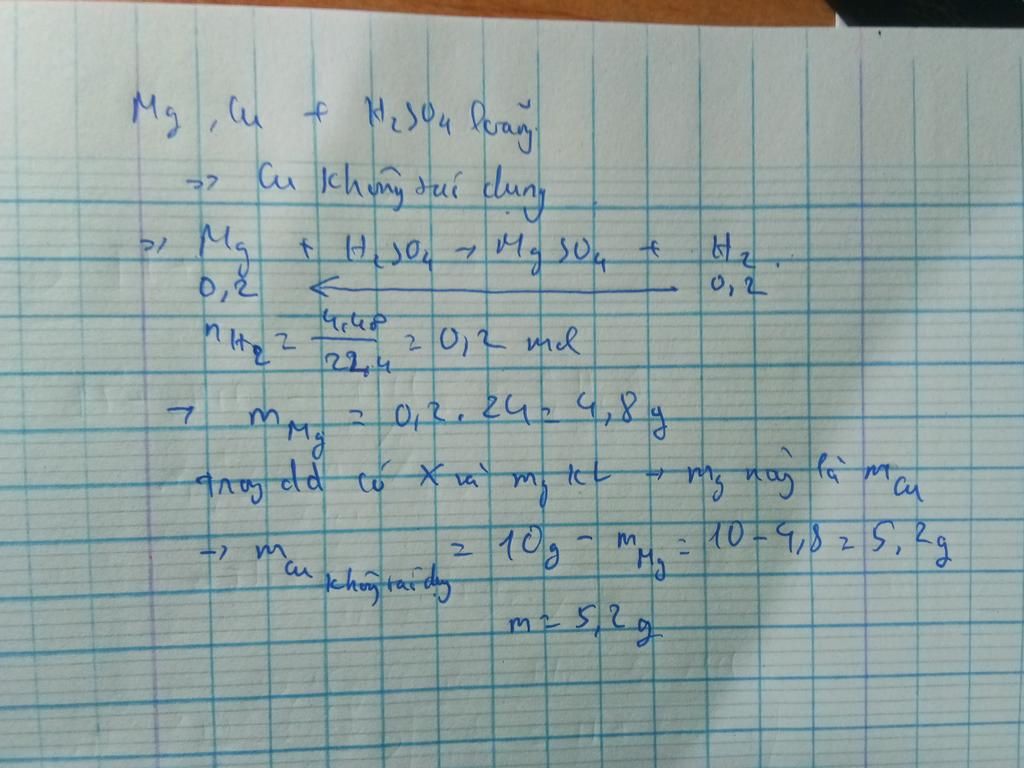 Mg, Cu + H₂SO₄ loãng
=> Cu không tác dụng
=> Mg + H₂SO₄ → MgSO₄ + H₂.
0,2 ← 0,2
nH₂ = 4,48/22,4 = 0,2 mol
→ mMg = 0,2.24 = 4,8g
trong dd có X và mg KL → mg này là mCu
→ mCu không tác dụng = 10g - mMg = 10-4,8 = 5,2g
m = 5,2g